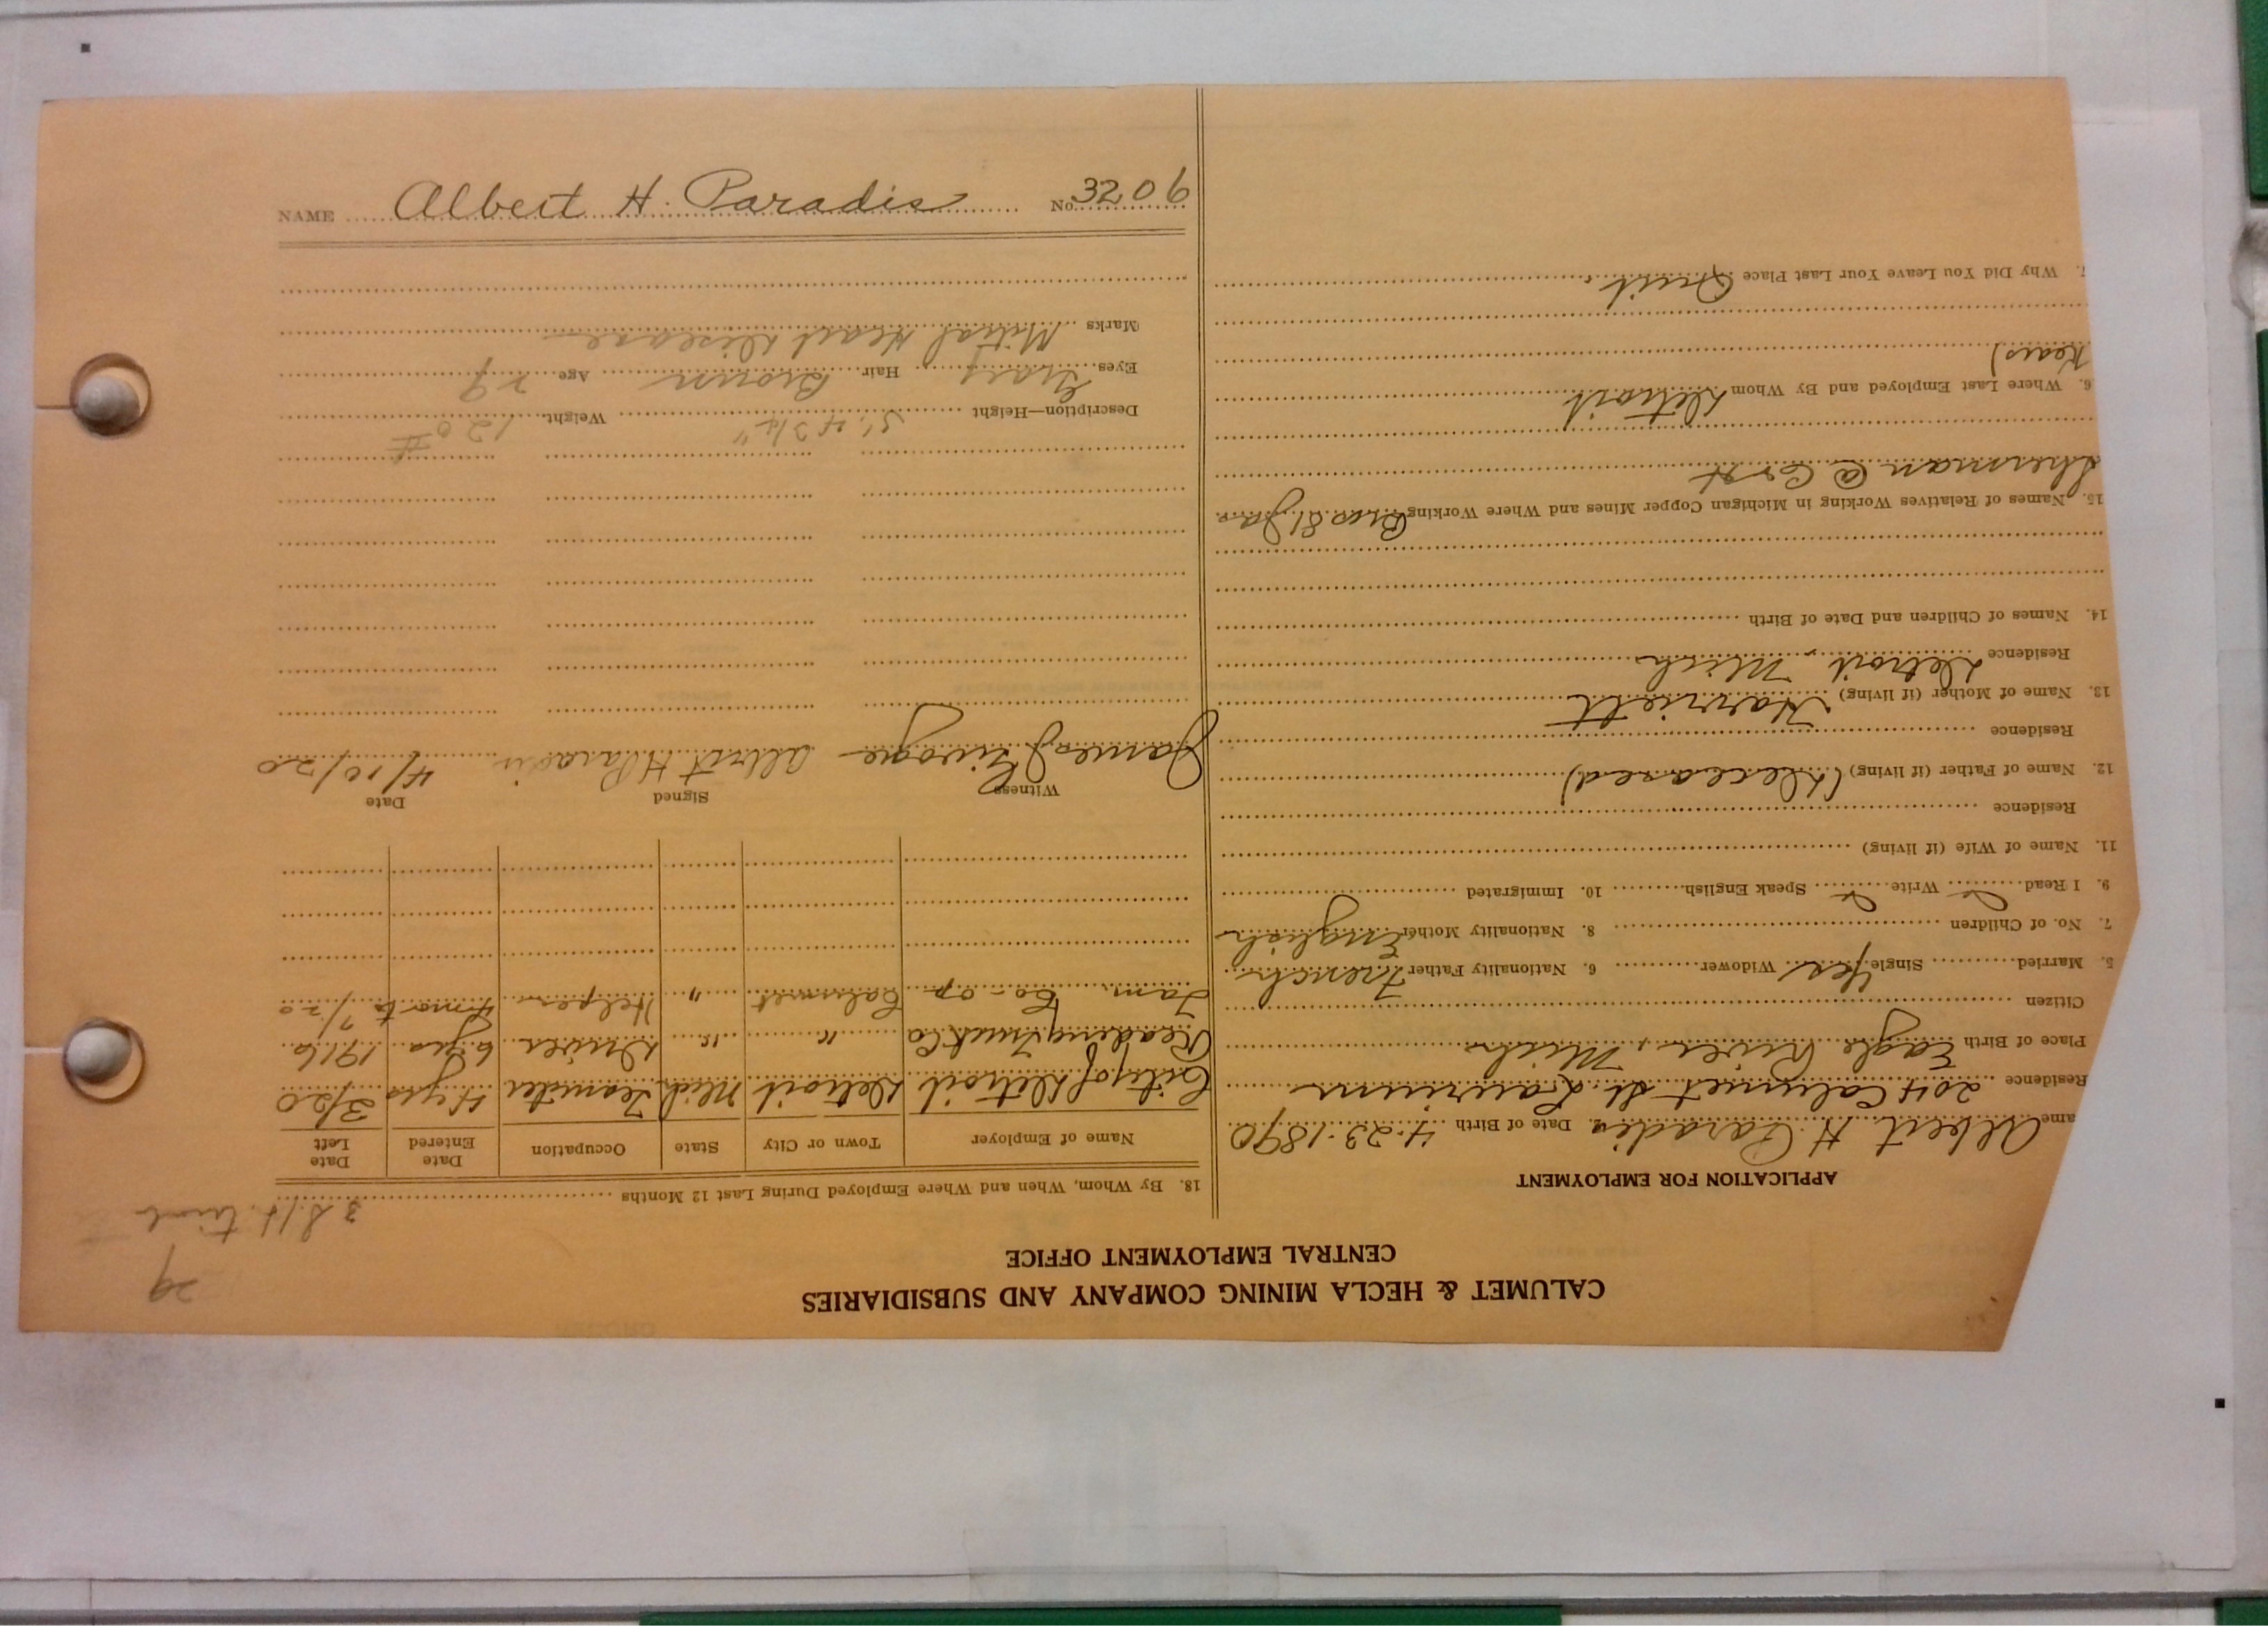 CALUMET & HECLA MINING COMPANY AND SUBSIDIARIES
CENTRAL EMPLOYMENT OFFICE
29
3 S/H. trial
APPLICATION FOR EMPLOYMENT
ame Albert H Paradis Date of Birth 4-23-1890
Residence 204 Calumet St. Laurium
Place of Birth Eagle River, Mich
Citizen
5. Married Single Yes Widower 6. Nationality Father French
7. No. of Children 8. Nationality Mother English
9. I Read Write Speak English 10. Immigrated
11. Name of Wife (if living)
Residence
12. Name of Father (if living) (Deceased)
Residence
13. Name of Mother (if living) Harriett
Residence Detroit, Mich
14. Names of Children and Date of Birth
15. Names of Relatives Working in Michigan Copper Mines and Where Working Bros El Ja
Sherman @ C & H
6. Where Last Employed and By Whom Detroit
7. Why Did You Leave Your Last Place Quit.
18. By Whom, When and Where Employed During Last 12 Months
Name of Employer Town or City State Occupation Date Entered Date Left
City of Detroit Detroit Mich Teamster 4 yrs 3/20
Reading Truck Co " " Driver 6 yrs 1916
Tam Co-op Calumet " Helper 4 mo to 7/20
Witness Signed Date
James Albert H Paradis 4/10/20
Description—Height 5'. 4 3/4" Weight 120#
Eyes Gray Hair Brown Age 29
Marks Mitral Heart Disease
NAME Albert H. Paradis No. 3206